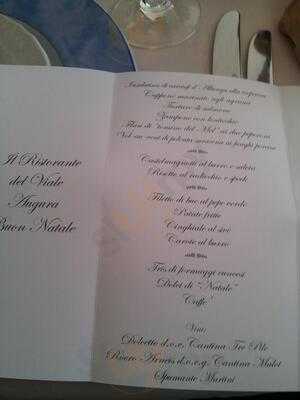 Il Ristorante
del Viale
Augura
Buon Natale
Insalatina di carciofi d'Albenga alla
Cappone marinato agli agrumi
Tartare di salmone
Zampone con lenticchie
Flan di "tomino del Mel" ai due peperoni
Vol au vent di polenta saracena ai funghi porcini
Castelmagnotti al burro e salvia
Risotto al radicchio e speck
Filetto di bue al pepe verde
Patate fritte
Cinghiale al civé
Carote al burro
Tris di formaggi cuneesi
Dolci di "Natale"
Caffe'
Vini:
Dolcetto d.o.c. Cantina Tre Pile
Roero Arneis d.o.c.g. Cantina Malot
Spumante Martini